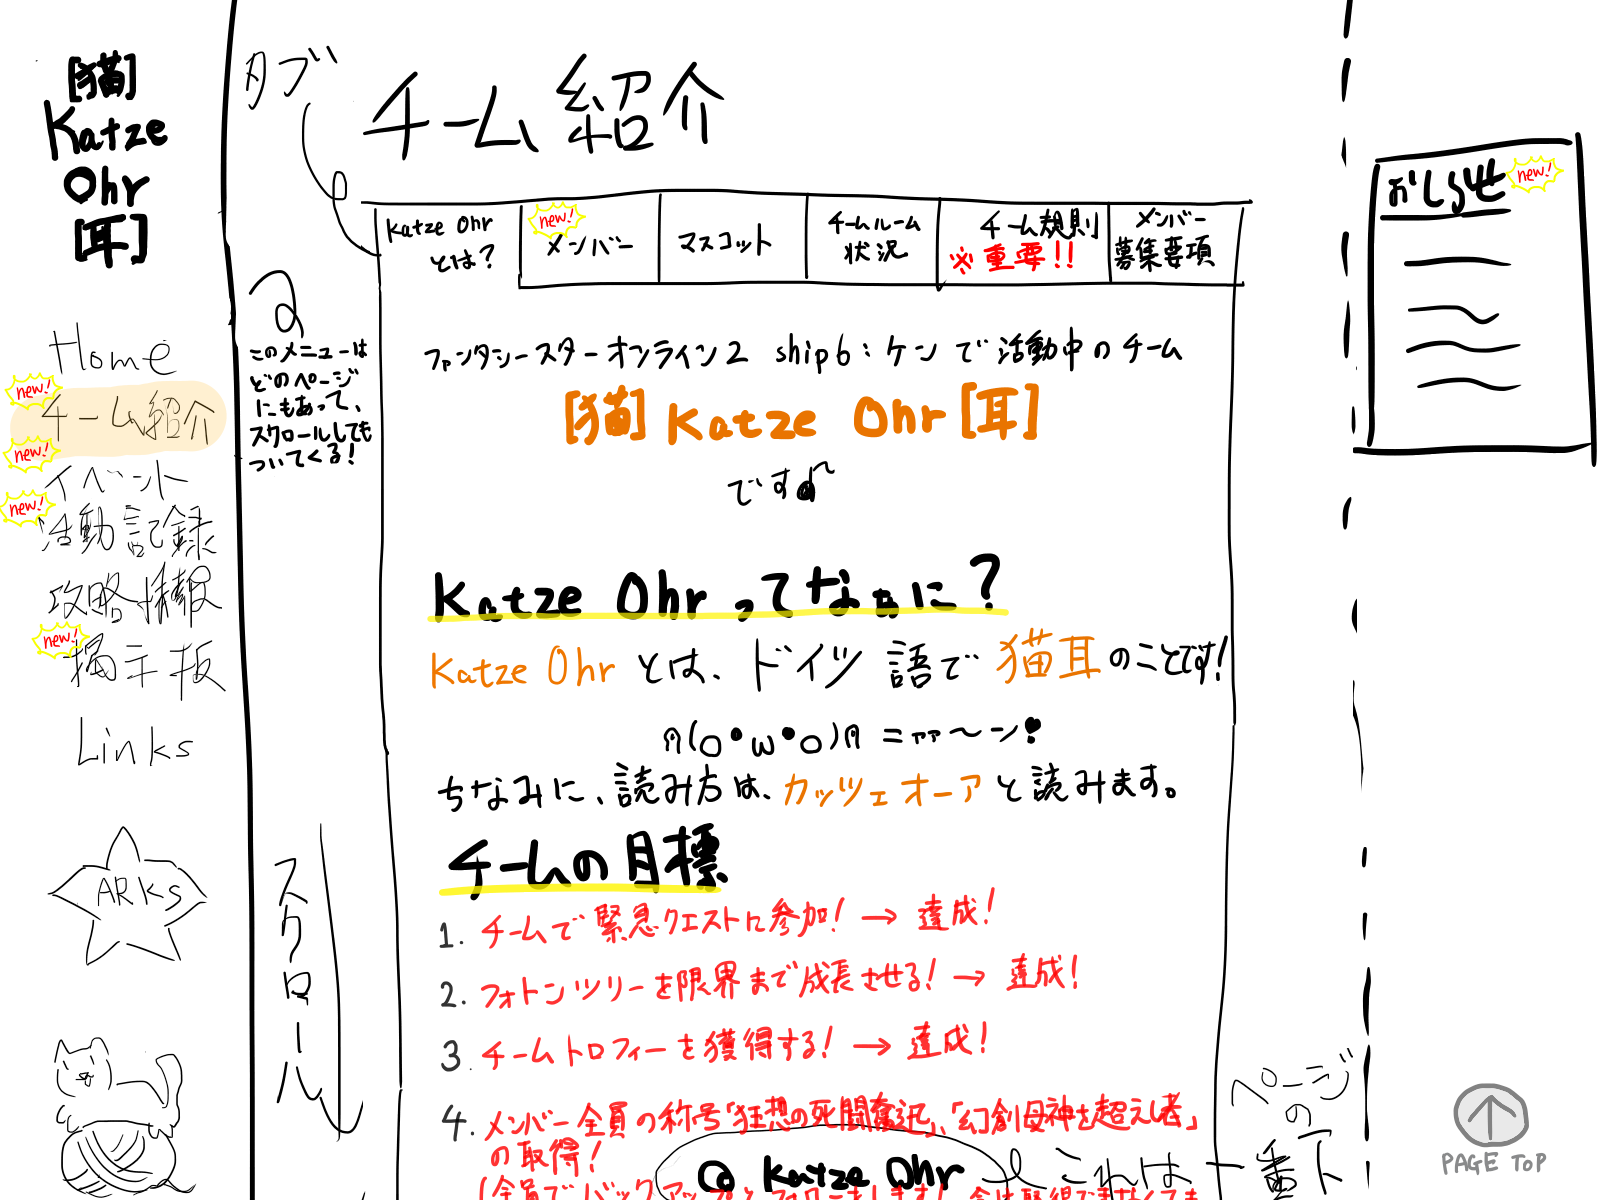 [猫]
Katze
Ohr
[耳]
Home
new!
チーム紹介
new!
イベント
new!
活動記録
攻略情報
new!
掲示板
Links
ARKS
タブ
このメニューは
どのページ
にもあって、
スクロールしても
ついてくる!
スクロール
チーム紹介
Katze Ohr
とは?
new!
メンバー
マスコット
チームルーム
状況
チーム規則
※重要!!
メンバー
募集要項
ファンタシースターオンライン2 ship6:ケンで活動中のチーム
[猫]Katze Ohr[耳]
です♪
Katze Ohrってなぁに?
Katze Ohrとは、ドイツ語で猫耳のことです!
ฅ(๐•ω•๐)ฅ =ァァ〜ン!
ちなみに、読み方は、カッツェオーアと読みます。
チームの目標
1. チームで緊急クエストに参加!→達成!
2. フォトンツリーを限界まで成長させる!→達成!
3. チームトロフィーを獲得する!→達成!
4. メンバー全員の称号「狂想の死闘奮迅」、「幻創母神を超えし者」
の取得!
Katze Ohr
これは一番下
ページの
おしらせ
new!
PAGE TOP